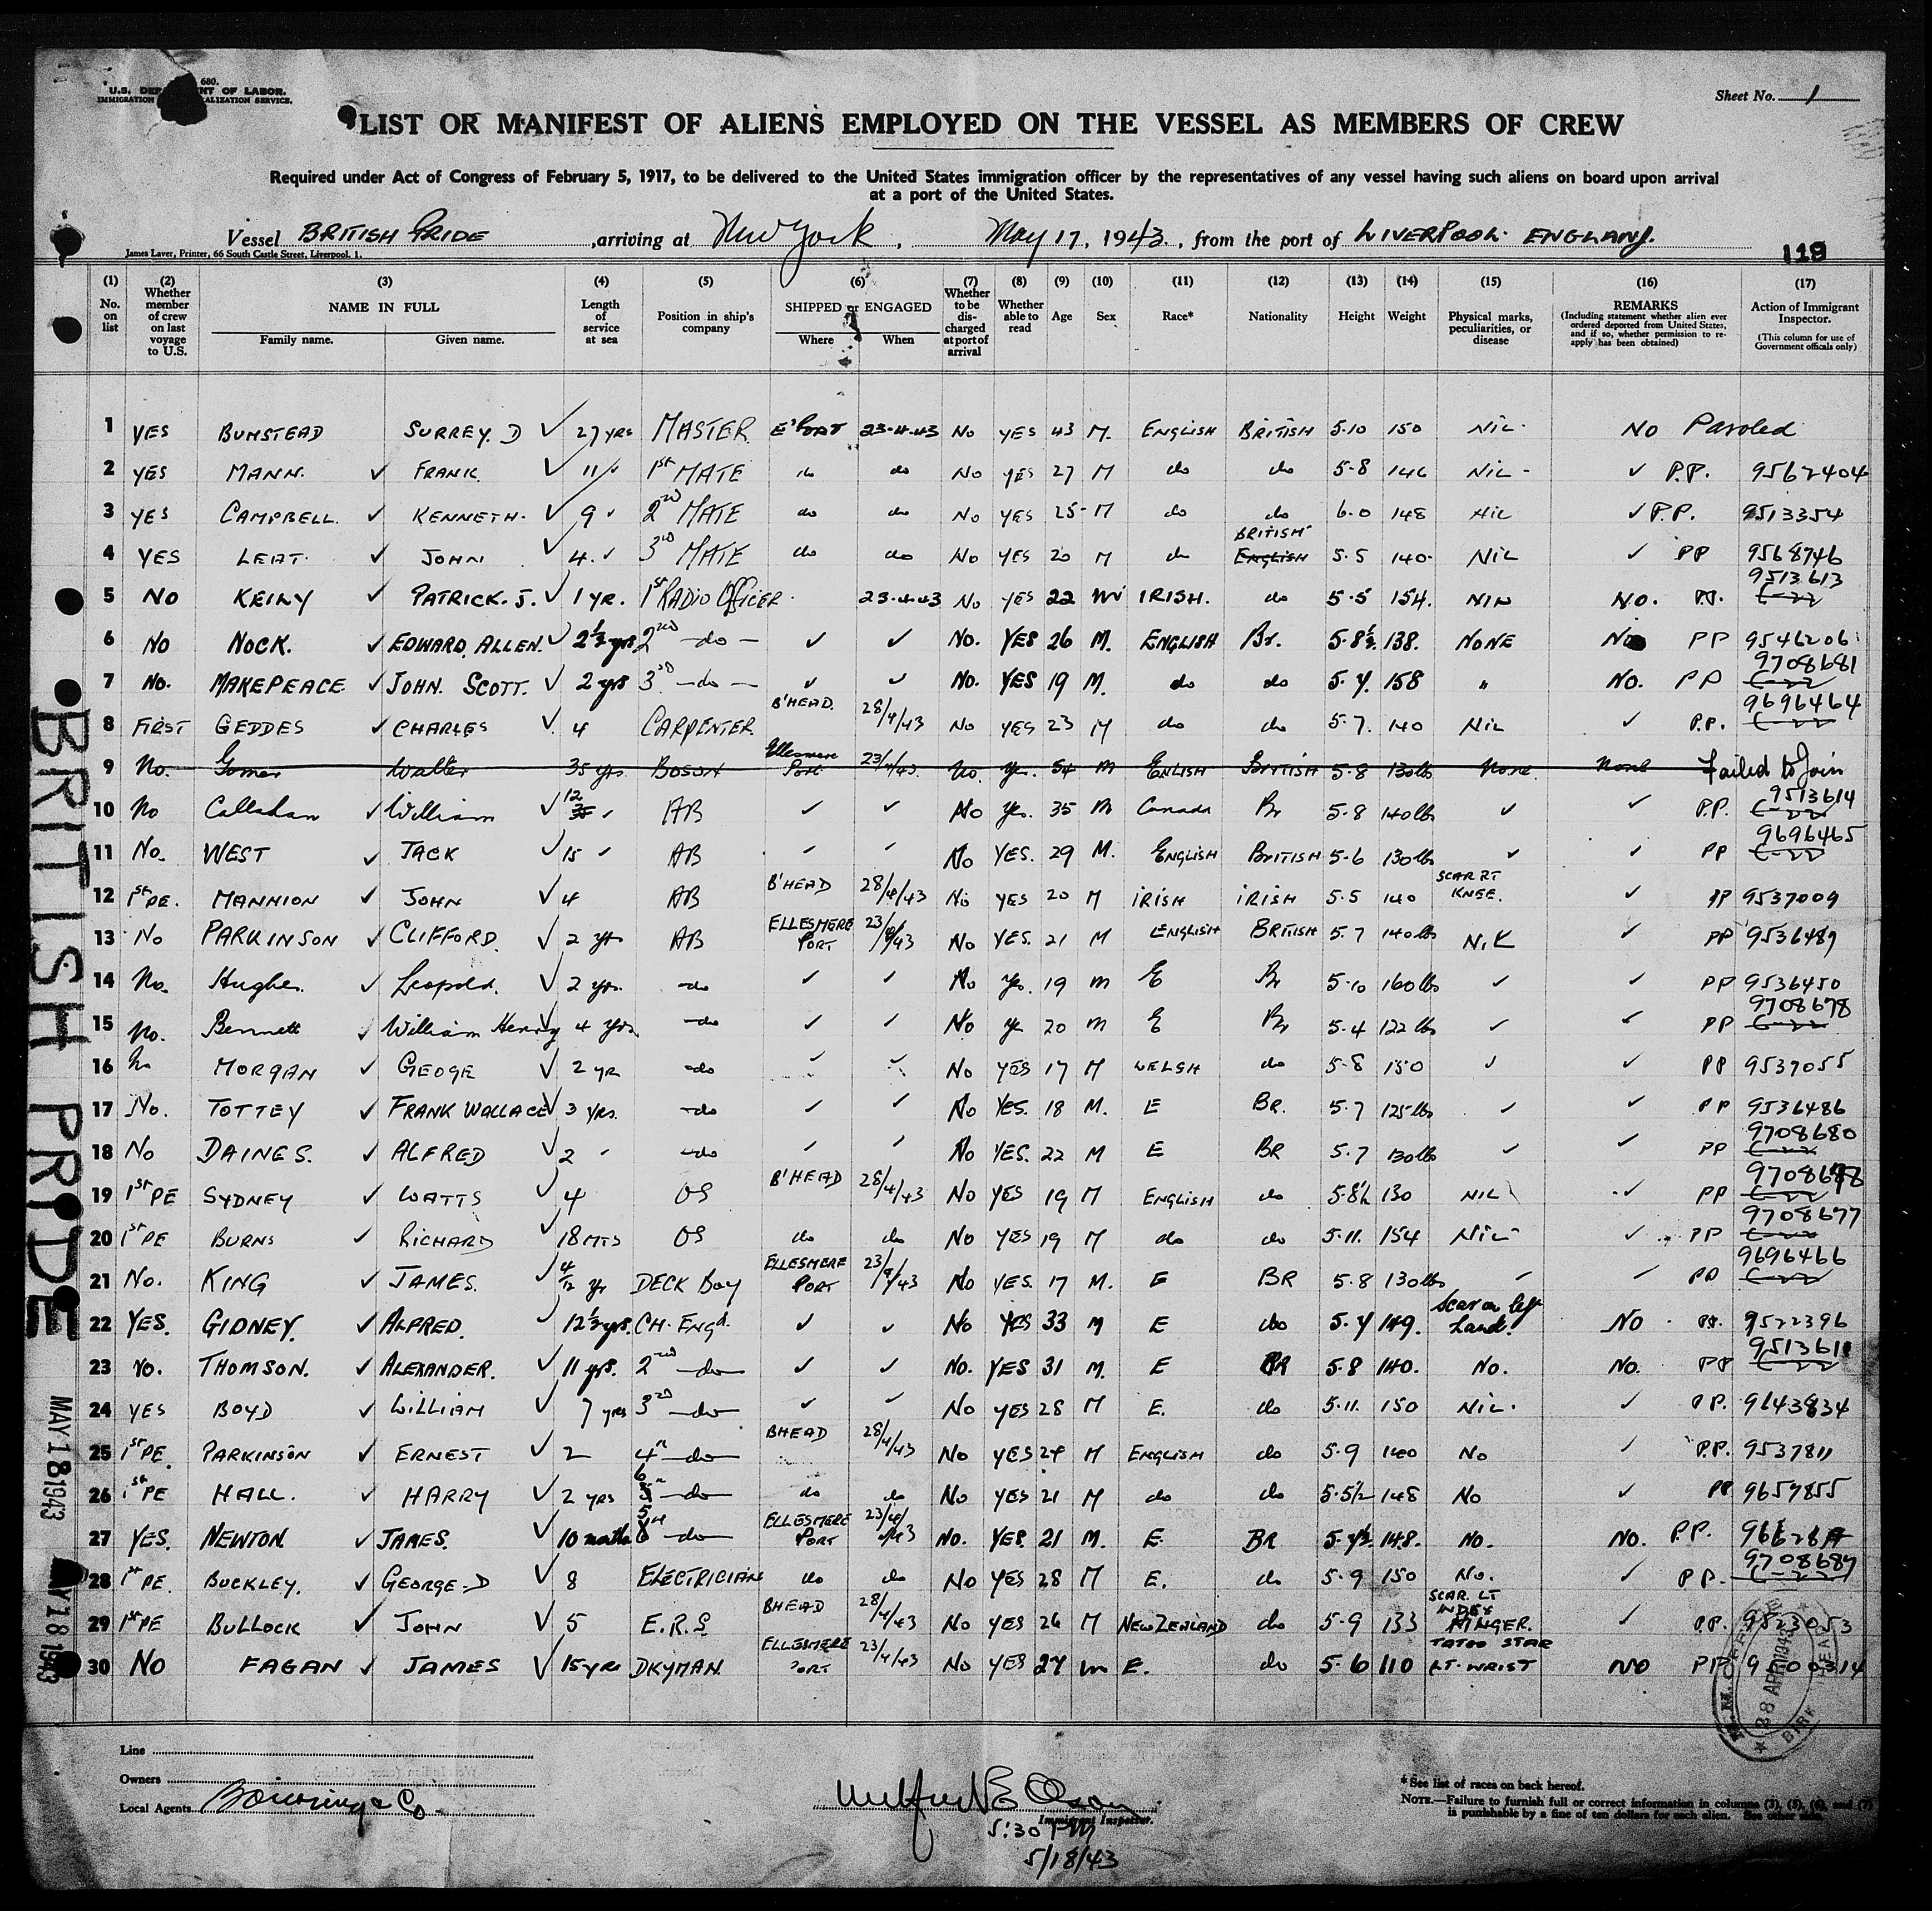 680.
U.S. DEP NT OF LABOR.
IMMIGRATION ALIZATION SERVICE.
Sheet No. 1
LIST OR MANIFEST OF ALIENS EMPLOYED ON THE VESSEL AS MEMBERS OF CREW
Required under Act of Congress of February 5, 1917, to be delivered to the United States immigration officer by the representatives of any vessel having such aliens on board upon arrival
at a port of the United States.
Vessel BRITISH PRIDE, arriving at New York, May 17, 1943, from the port of LIVERPOOL ENGLAND.
James Laver, Printer, 66 South Castle Street, Liverpool, 1.
119
(1) No. on list
(2) Whether member of crew on last voyage to U.S.
(3) NAME IN FULL Family name. Given name.
(4) Length of service at sea
(5) Position in ship's company
(6) SHIPPED or ENGAGED Where When
(7) Whether to be discharged at port of arrival
(8) Whether able to read
(9) Age
(10) Sex
(11) Race*
(12) Nationality
(13) Height
(14) Weight
(15) Physical marks, peculiarities, or disease
(16) REMARKS (Including statement whether alien ever ordered deported from United States, and if so, whether permission to re-apply has been obtained)
(17) Action of Immigrant Inspector. (This column for use of Government officials only)
1 YES BUMSTEAD SURREY. D ✓ 27 YRS MASTER E'PORT 23-4-43 No YES 43 M. ENGLISH BRITISH 5-10 150 NIL- NO Paroled
2 YES MANN. ✓ FRANK. ✓ 11 ✓ 1ST MATE do do No YES 27 M do do 5-8 146 NIL- ✓ P.P. 9562404
3 YES CAMPBELL. ✓ KENNETH- ✓ 9 ✓ 2ND MATE do do No YES 25- M do do 6-0 148 NIL ✓ P.P. 9513354
4 YES LEAT. ✓ JOHN ✓ 4. ✓ 3RD MATE do do No YES 20 M do BRITISH ENGLISH 5-5 140- NIL ✓ PP 9568746
5 NO KEILY ✓ PATRICK. J. ✓ 1 YR. 1ST RADIO OFFICER. 23-4-43 No YES 22 M IRISH. do 5-5 154. NIL NO. P.P. 9513613
6 NO NOCK. ✓ EDWARD. ALLEN. ✓ 2½ yrs 2ND —do— ✓ ✓ NO. YES 26 M. ENGLISH Br. 5-8½ 138. NONE No PP 9546206
7 NO. MAKEPEACE ✓ JOHN. SCOTT. ✓ 2 yrs 3RD —do— ✓ ✓ NO. YES 19 M. do do 5-7. 158 " NO. PP 9708681
8 FIRST GEDDES ✓ CHARLES ✓ 4 CARPENTER B'HEAD. 28/4/43 No YES 23 M do do 5-7. 140 NIL ✓ P.P. 9696464
9 No. Gomer Walter 35 yrs. BOSUN Ellesmere Port 23/4/43. No. Yes. 54 M ENLISH BRITISH 5-8 130 lb None. None Failed to Join
10 No Callahan ✓ William ✓ 12 ✓ AB ✓ ✓ No Yes. 35 M Canada Br 5-8 140 lbs ✓ ✓ P.P. 9513614
11 No. WEST ✓ JACK ✓ 15 ✓ AB ✓ ✓ No YES. 29 M. ENGLISH BRITISH 5-6 130 lbs ✓ ✓ PP 9696465
12 1ST PE. MANNION ✓ JOHN ✓ 4 AB B'HEAD 28/4/43 No YES 20 M IRISH IRISH 5-5 140 SCAR RT KNEE. ✓ PP 9537009
13 No PARKINSON ✓ CLIFFORD. ✓ 2 yrs AB ELLESMERE PORT 23/4/43 No YES. 21 M ENGLISH BRITISH 5-7 140 lbs NIL ✓ PP 9536489
14 No. Hughes. ✓ Leopold. ✓ 2 yrs. -do ✓ ✓ No Yes. 19 M E Br 5-10 160 lbs ✓ ✓ PP 9536450
15 No. Bennett ✓ William Henry ✓ 4 yrs. -do ✓ ✓ No Yes 20 M E Br 5-4 122 lbs ✓ ✓ PP 9708678
16 No MORGAN ✓ GEOGE ✓ 2 YR -do ✓ ✓ No YES 17 M WELSH do 5-8 150 ✓ ✓ PP 9537055
17 No. TOTTEY ✓ FRANK WALLACE ✓ 3 YRS. -do ✓ ✓ No YES. 18 M. E BR. 5-7 125 lbs ✓ ✓ PP 9536486
18 No DAINES. ✓ ALFRED ✓ 2 ✓ -do ✓ ✓ No YES. 22 M E BR 5-7 130 lbs ✓ ✓ PP 9708680
19 1ST PE SYDNEY ✓ WATTS ✓ 4 OS B'HEAD 28/4/43 No YES 19 M ENGLISH do 5-8½ 130 NIL ✓ PP
20 1ST PE BURNS ✓ RICHARD ✓ 18 MTS OS do do No YES 19 M do do 5-11. 154 NIL- ✓ PP 9708677
21 No. KING ✓ JAMES. ✓ 4/12 yr DECK BOY ELLESMERE PORT 23/4/43 No YES. 17 M. E BR 5-8 130 lbs ✓ ✓ PP 9696466
22 YES. GIDNEY. ✓ ALFRED. ✓ 12½ yrs. CH. ENGR. ✓ ✓ No YES 33 M E do 5-7 149. Scar on left hand. NO P.P. 9522396
23 NO. THOMSON. ✓ ALEXANDER. ✓ 11 yrs. 2ND —do— ✓ ✓ NO. YES 31 M. E BR 5-8 140. NO. NO. PP 9513611
24 YES BOYD ✓ WILLIAM ✓ 7 yrs 3RD —do— ✓ ✓ No YES 28 M E. do 5-11. 150 NIL. ✓ P.P. 9643834
25 1ST PE. PARKINSON ✓ ERNEST ✓ 2 4TH —do— BHEAD 28/4/43 No YES 24 M ENGLISH do 5-9 140 No ✓ P.P. 9537811
26 1ST PE HALL. ✓ HARRY ✓ 2 YRS 6 —do— do do No YES 21 M do do 5-5½ 148 No ✓ PP 9659855
27 YES. NEWTON ✓ JAMES. ✓ 10 months 5 —do— ELLESMERE PORT 23/4/43 NO. YES. 21 M. E. BR 148. NO. NO. P.P.
28 1ST PE. BUCKLEY. ✓ GEORGE-D ✓ 8 ELECTRICIAN do do No YES 28 M E. do 5-9 150 No. ✓ PP. 9708689
29 1ST PE BULLOCK ✓ JOHN ✓ 5 E.R.S. BHEAD 28/4/43 No YES 26 M NEW ZEALAND do 5-9 133 SCAR. LT INDEX FINGER. ✓ P.P. 9523053
30 NO FAGAN ✓ JAMES ✓ 15 YRS DKYMAN. ELLESMERE PORT 23/4/43 No YES 27 M E. do 5-6 110 TATOO STAR LT. WRIST NO PP 9500314
BRITISH PRIDE
MAY 18 1943
MAY 18 1943
28 APR 1943
Line
Owners
Local Agents Bowring & Co.
Immigrant Inspector.
5:30 PM
5/18/43
*See list of races on back hereof.
NOTE.—Failure to furnish full or correct information in columns (3), (5), (6), and (7)
is punishable by a fine of ten dollars for each alien. See other side.